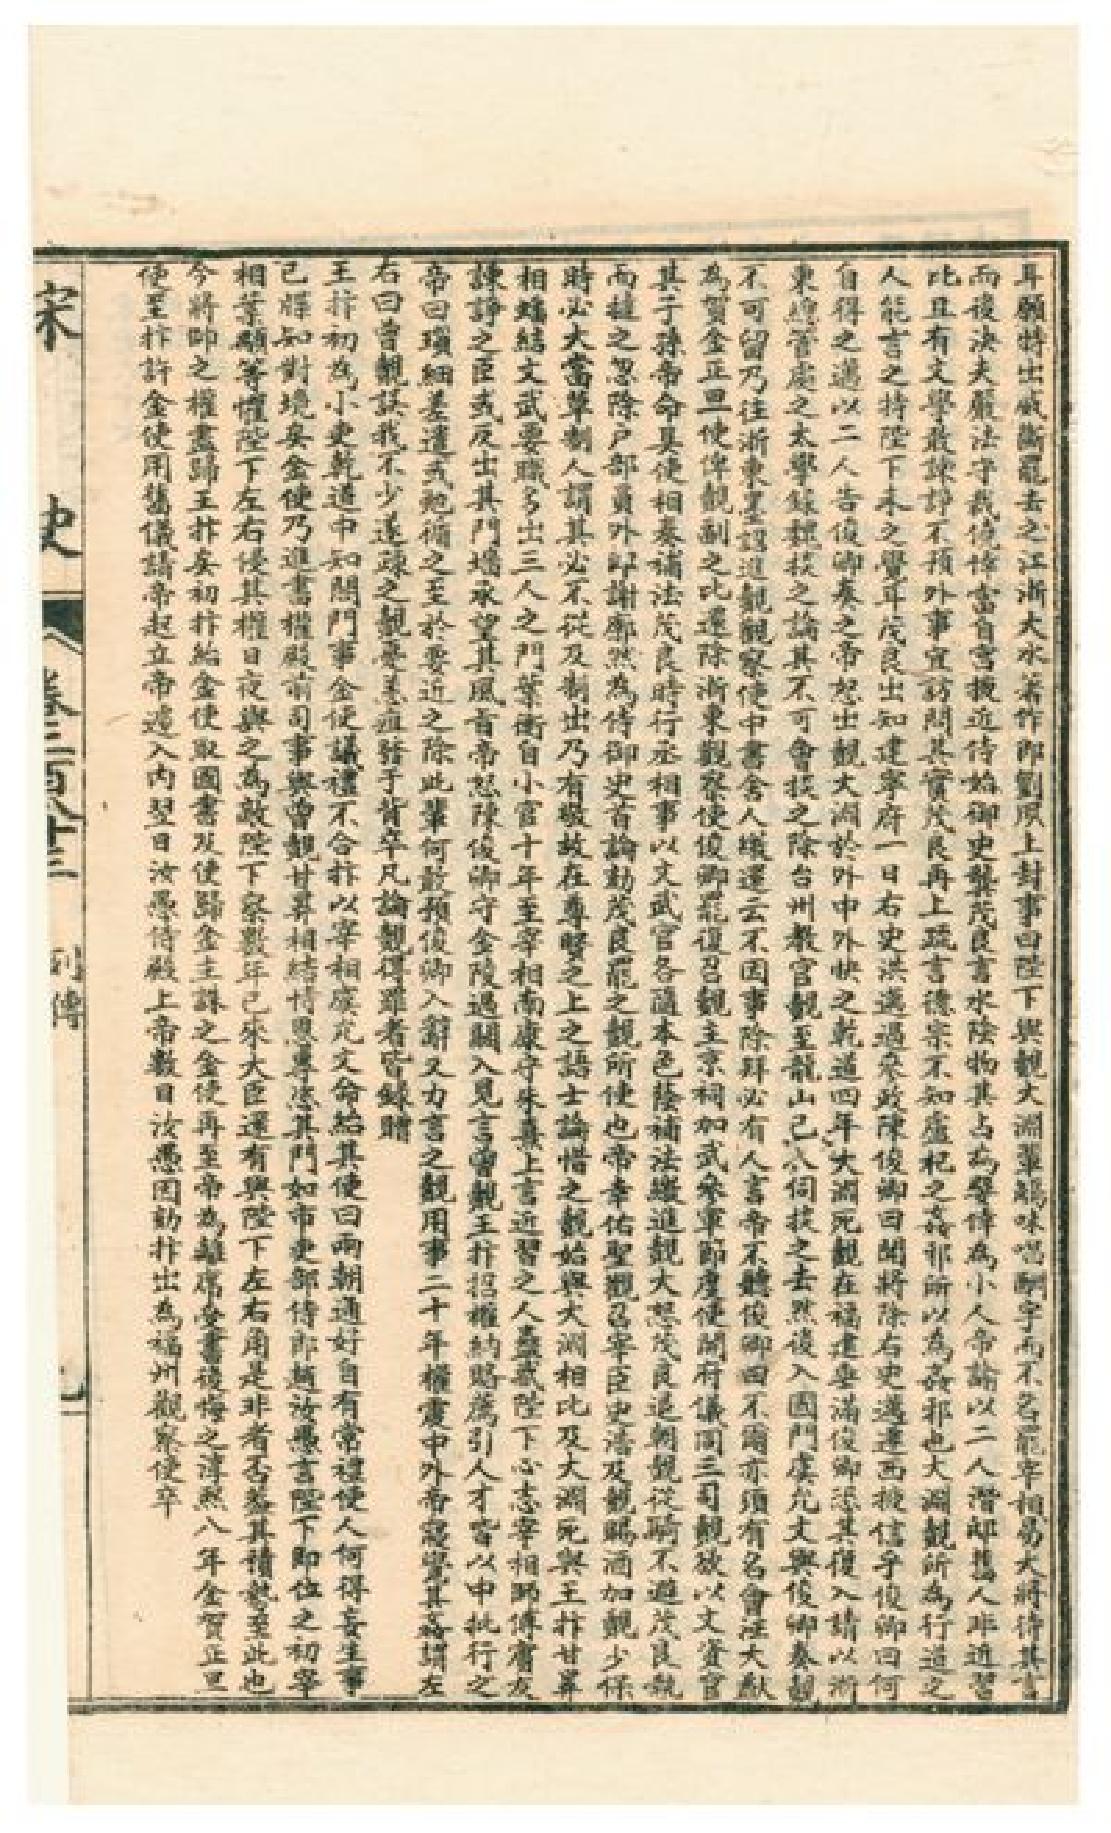 耳願特出威斷罷去之江浙大水著作郎劉夙上封事曰陛下與覿大淵輩觴咏唱酬字而不名罷宰相易大將待其言
而後決夫嚴法守裁僥倖當自宮掖近侍始御史龔茂良言水陰物其占為嬖倖為小人帝諭以二人潛邸舊人非近習
比且有文學敢諫諍不預外事宜訪問其實茂良再上疏言德宗不知盧杞之姦邪所以為姦邪也大淵覿所為行道之
人能言之特陛下未之覺耳茂良出知建寧府一日右史洪邁過參政陳俊卿曰聞將除右史邁遷西掖信乎俊卿曰何
自得之邁以二人告俊卿奏之帝怒出覿大淵於外中外快之乾道四年大淵死覿在福建垂滿俊卿恐其復入請以浙
東總管處之太學錄魏掞之論其不可會掞之除台州教官覿至龍山已久伺掞之去然後入國門虞允文與俊卿奏覿
不可留乃往浙東墨詔進覿觀察使中書舍人繳還云不因事除拜必有人言帝不聽俊卿曰不爾亦須有名會汪大猷
為賀金正旦使俾覿副之比還除浙東觀察使俊卿罷復召覿主京祠加武泰軍節度使開府儀同三司覿欲以文資官
其子孫帝命具使相奏補法茂良時行丞相事以文武官各隨本色蔭補法繳進覿大怒茂良退朝覿從騎不避茂良執
而撻之忽除戶部員外郎謝廓然為侍御史首論劾茂良罷之覿所使也帝幸佑聖觀召宰臣史浩及覿賜酒加覿少保
時必大當草制人謂其必不從及制出乃有敬故在尊賢之上之語士論惜之覿始與大淵相比及大淵死與王抃甘昪
相蟠結文武要職多出三人之門葉衡自小官十年至宰相南康守朱熹上言近習之人蠱惑陛下心志宰相師傅賓友
諫諍之臣或反出其門墻承望其風旨帝怒陳俊卿守金陵過闕入見言曾覿王抃招權納賂薦引人才皆以中批行之
帝曰瑣細差遣或勉循之至於要近之除此輩何敢預俊卿入辭又力言之覿用事二十年權震中外帝寖覺其姦謂左
右曰曾覿誤我不少遂疎之覿憂恚疽發于背卒凡論覿得罪者皆錄贈
王抃初為小吏乾道中知閤門事金使議禮不合抃以宰相虞允文命紿其使曰兩朝通好自有常禮使人何得妄生事
已牒知對境矣金使乃進書權殿前司事與曾覿甘昪相結恃恩專恣其門如市吏部侍郎趙汝愚言陛下即位之初宰
相葉顒等懼陛下左右侵其權日夜與之為敵陛下察數年已來大臣還有與陛下左右角是非者否蓋其積勢至此也
今將帥之權盡歸王抃矣初抃紿金使取國書及使歸金主誅之金使再至帝為離席受書後悔之淳熙八年金賀正旦
使至抃許金使用舊儀請帝起立帝遽入內翌日汝愚侍殿上帝數目汝愚因劾抃出為福州觀察使卒
宋 史 卷四百七十 列傳